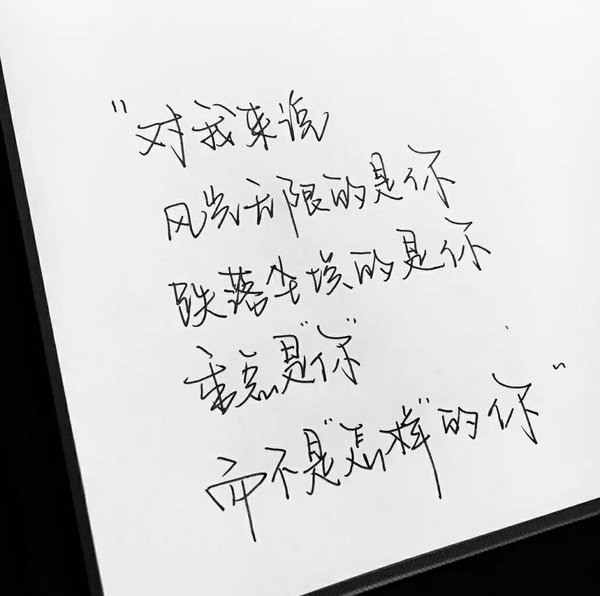 "对我来说
风光无限的是你
跌落尘埃的是你
重点是"你"
而不是"怎样"的你"